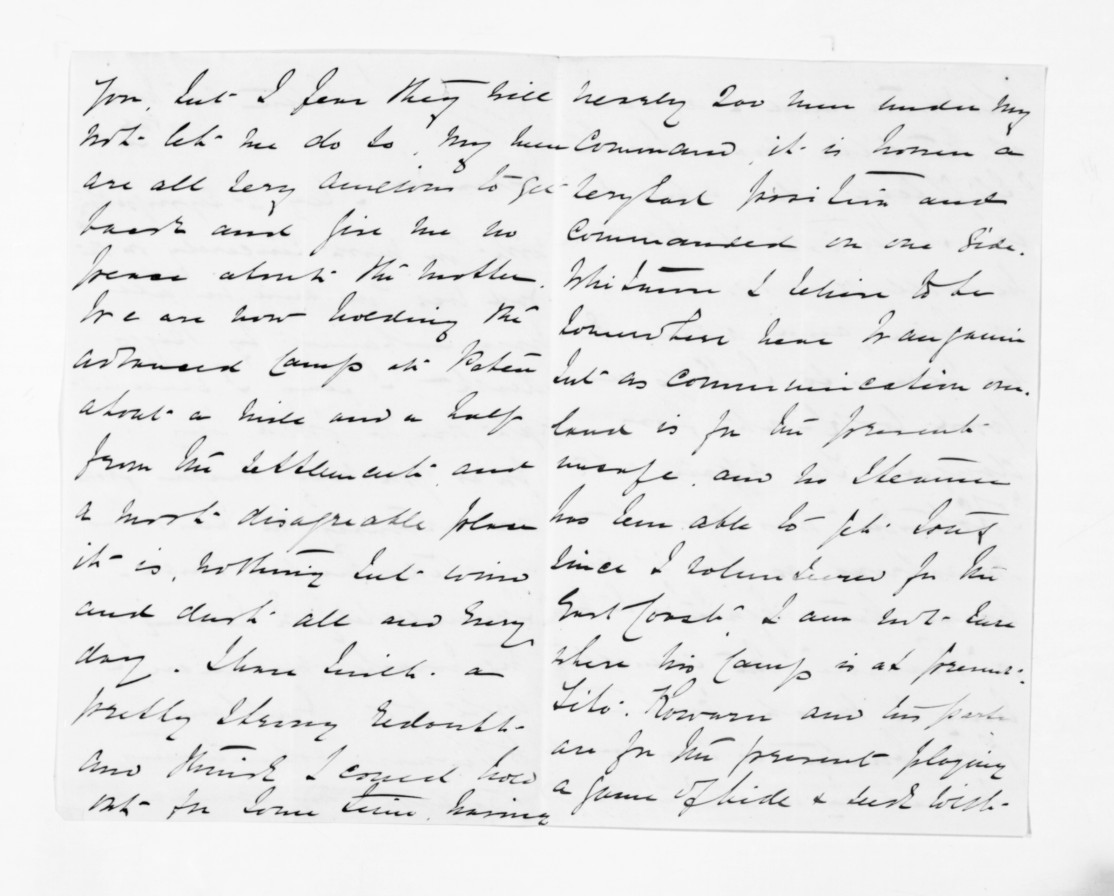 you, but I fear they will
not let me do so, my men
are all very anxious to get
back and give me no
peace about the matter.
We are now holding the
advanced Camp at Patea
about a mile and a half
from the settlement and
a most disagreable place
it is, nothing but wind
and dust all and every
day. I have built a
pretty strong redoubt
and think I could hold
out for some time, having
nearly 200 men under my
Command, it is however a
very bad position and
Commanded on one side.
Whitmore I believe to be
somewhere near Wanganui
but as communication over
land is for the present
unsafe, and no Steamer
has been able to get South
since I volunteered for the
East Coast, I am not sure
where his Camp is at present.
Tito Kowaru and his party
are for the present playing
a game of hide & seek with